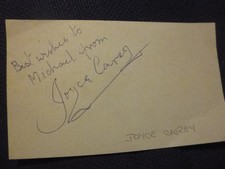 Best wishes to
Michael from
Joyce Carey
JOYCE CAREY